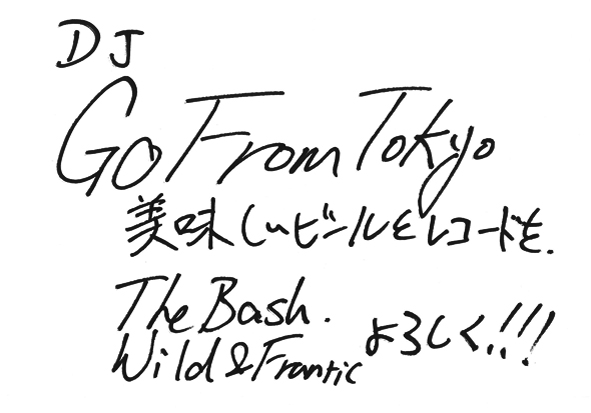 DJ
Go From Tokyo
美味しいビールとレコードを.
The Bash.
Wild & Frantic よろしく!!!